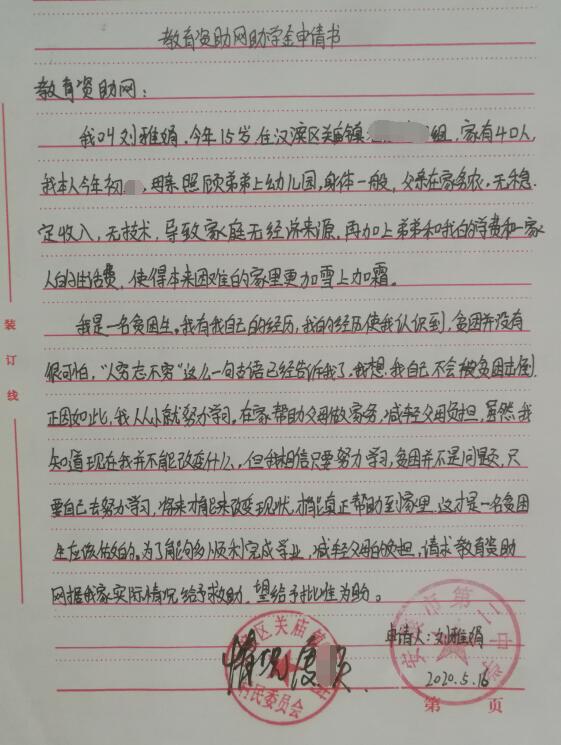 教育资助网助学金申请书
教育资助网：
我叫刘雅娟，今年15岁，住汉滨区关庙镇 组，家有4口人，
我本人今年初 ，母亲照顾弟弟上幼儿园，身体一般，父亲在家务农，无稳
定收入，无技术，导致家庭无经济来源，再加上弟弟和我的学费和一家
人的生活费，使得本来困难的家里更加雪上加霜。
我是一名贫困生。我有我自己的经历，我的经历使我认识到，贫困并没有
很可怕，“人穷志不穷”这么一句古语已经告诉我了，我想，我自己不会被贫困击倒。
正因如此，我从小就努力学习。在家帮助父母做家务，减轻父母负担，虽然我
知道现在我并不能改变什么，但我相信只要努力学习，贫困并不是问题，只
要自己去努力学习，将来才能来改变现状，才能真正帮助到家里，这才是一名贫困
生应该做的。为了能够顺利完成学业，减轻父母的负担，请求教育资助
网据我家实际情况给予救助，望给予批准为盼。
装
订
线
区关庙镇
村民委员会
情况属实
安康市第二中学
申请人：刘雅娟
2020.5.16
第 页